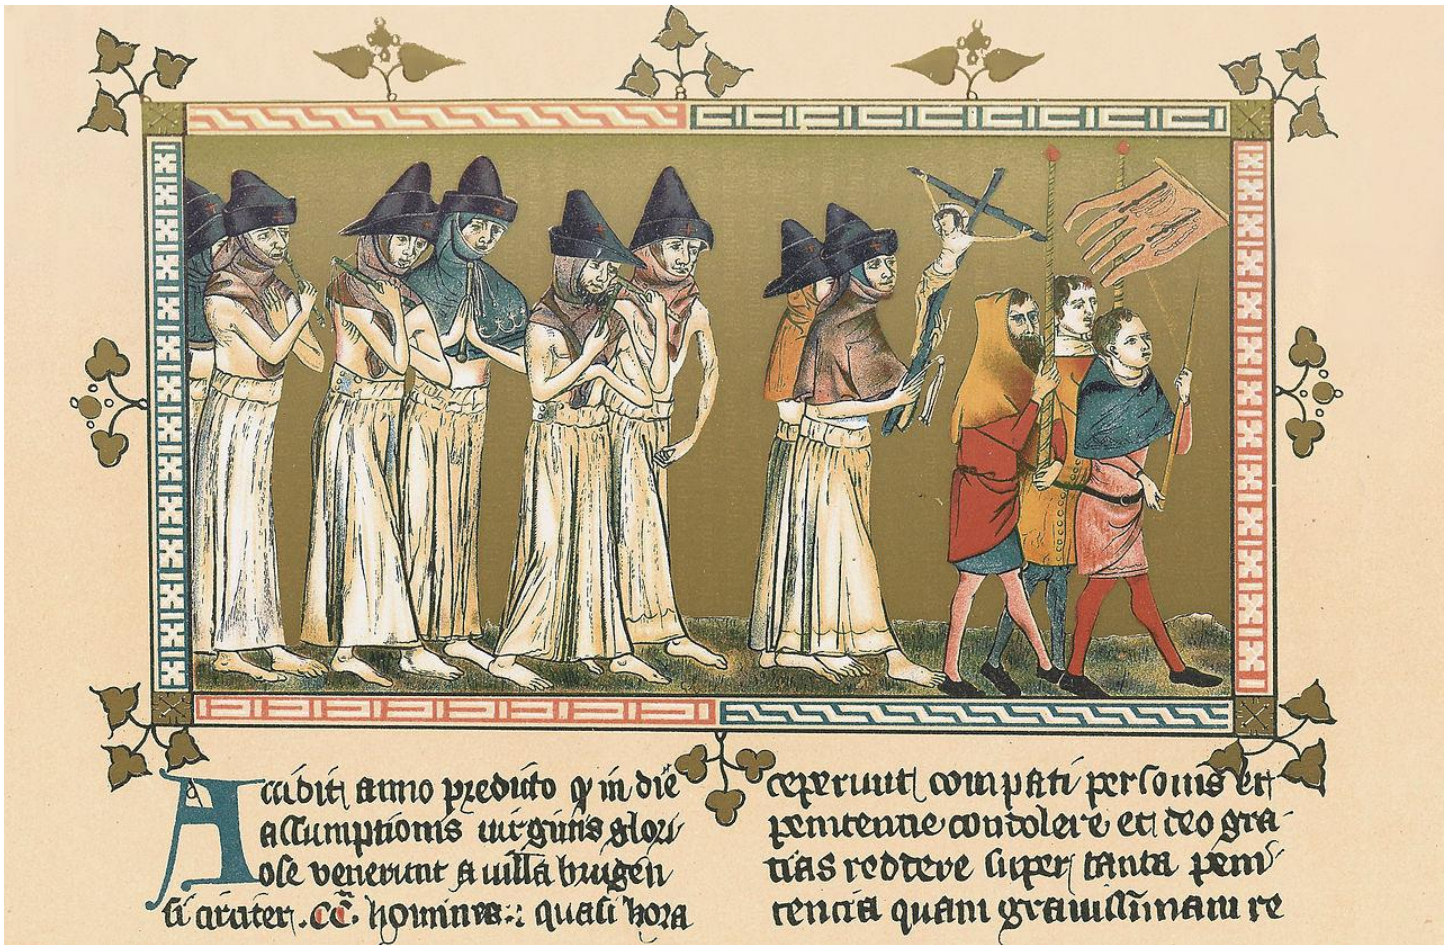 Accidit anno predicto q in die
assumptionis virginis glori
ose venerunt a villa brugen
si circiter .CC. homines : quasi hora
ceperunt compati personis et
penitencie condolere et deo gra
tias reddere super tanta peni
tencia quam gravissimam re